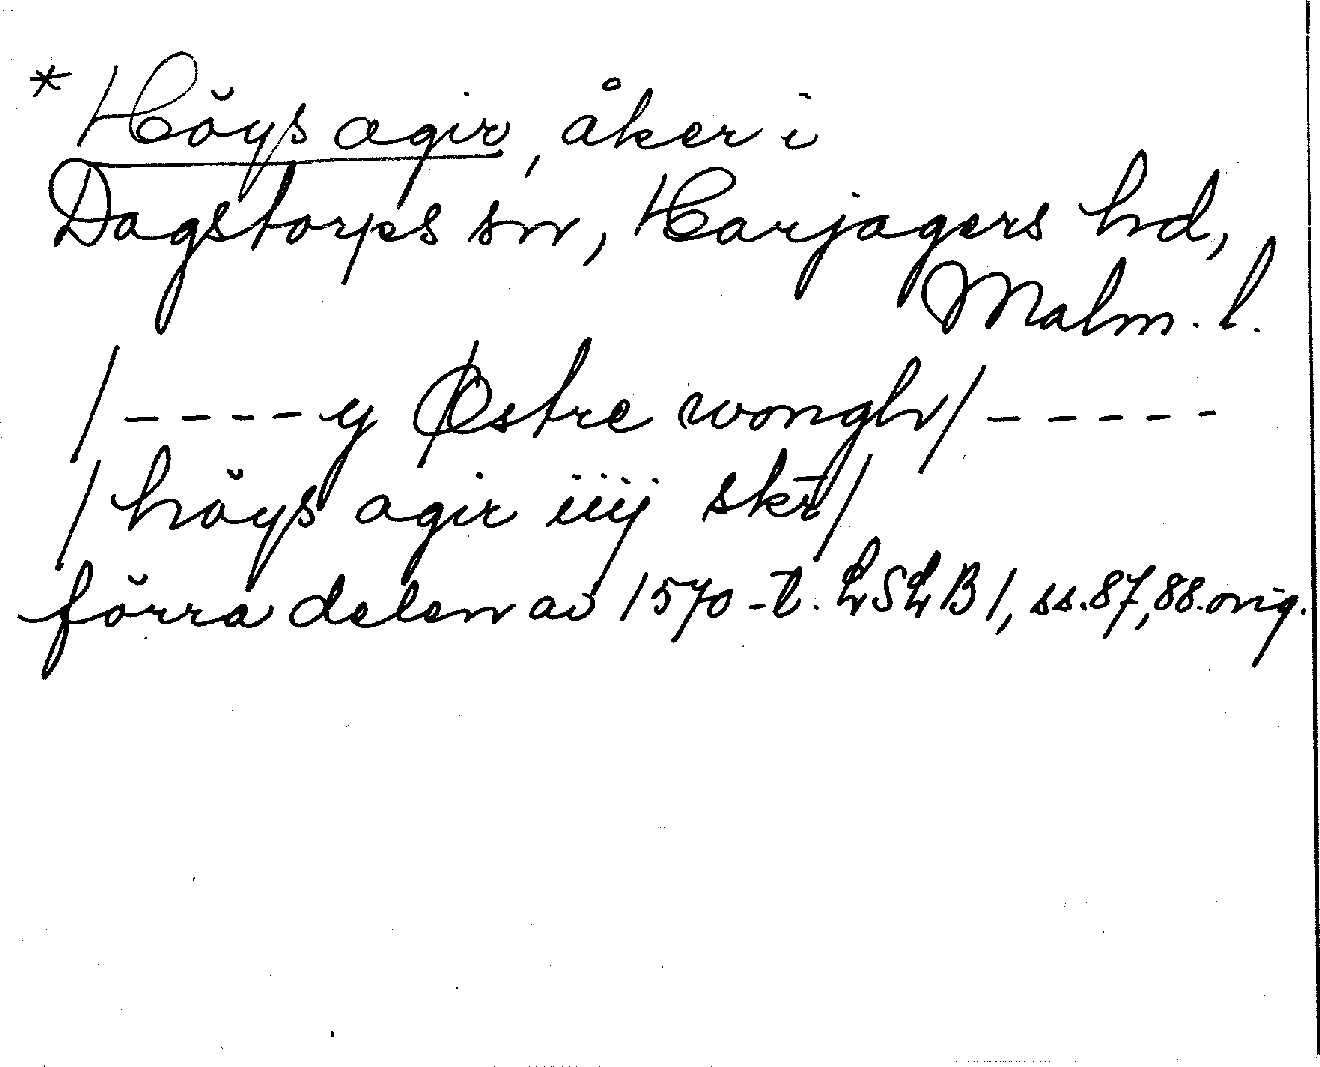 *Höys agir, åker i
Dagstorps sn, Harjagers hd,
Malm. l.
/----y Østre wongh/-----
/höys agir iiij skr/
förra delen av 1570-t. LSLB1, ss. 87, 88. orig.